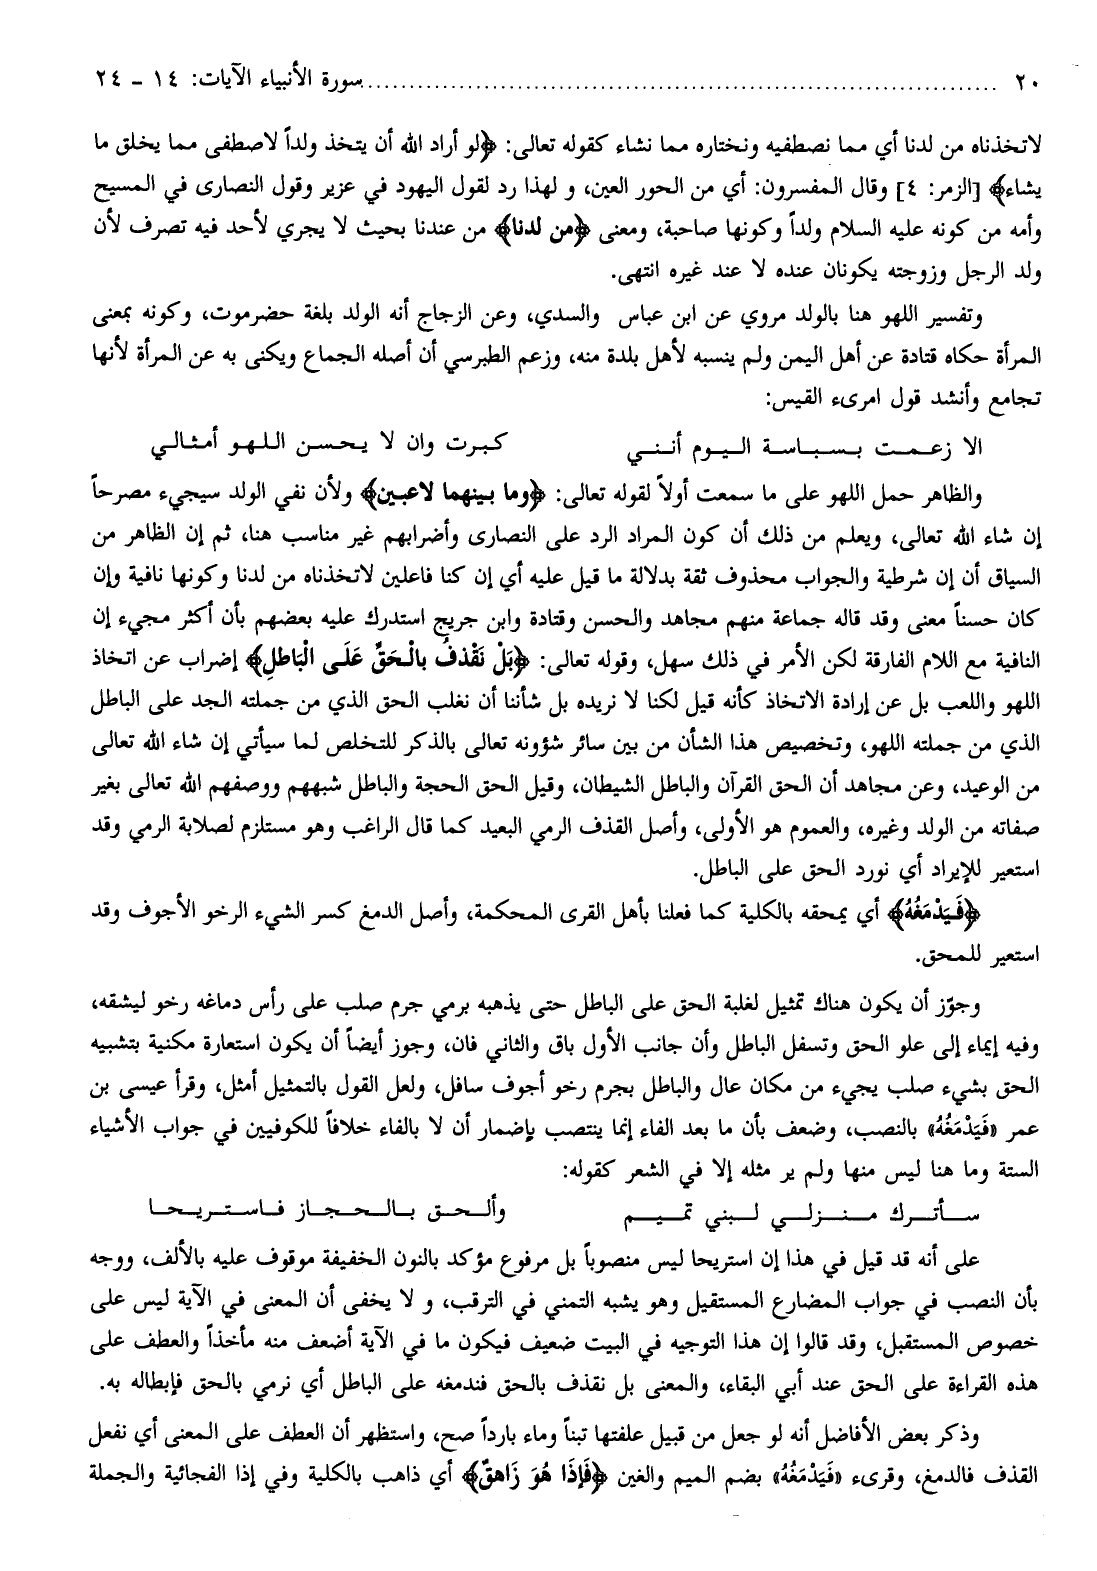 ٢٠ ........................................ سورة الأنبياء الآيات: ١٤ - ٢٤
لاتخذناه من لدنا أي مما نصطفيه ونختاره مما نشاء كقوله تعالى: ﴿لو أراد الله أن يتخذ ولداً لاصطفى مما يخلق ما
يشاء﴾ [الزمر: ٤] وقال المفسرون: أي من الحور العين، و لهذا رد لقول اليهود في عزير وقول النصارى في المسيح
وأمه من كونه عليه السلام ولداً وكونها صاحبة، ومعنى ﴿من لدنا﴾ من عندنا بحيث لا يجري لأحد فيه تصرف لأن
ولد الرجل وزوجته يكونان عنده لا عند غيره انتهى.
وتفسير اللهو هنا بالولد مروي عن ابن عباس والسدي، وعن الزجاج أنه الولد بلغة حضرموت، وكونه بمعنى
المرأة حكاه قتادة عن أهل اليمن ولم ينسبه لأهل بلدة منه، وزعم الطبرسي أن أصله الجماع ويكنى به عن المرأة لأنها
تجامع وأنشد قول امرىء القيس:
الا زعمت بسباسة اليوم أنني كبرت وان لا يحسن اللهو أمثالي
والظاهر حمل اللهو على ما سمعت أولاً لقوله تعالى: ﴿وما بينهما لاعبين﴾ ولأن نفي الولد سيجيء مصرحاً
إن شاء الله تعالى، ويعلم من ذلك أن كون المراد الرد على النصارى وأضرابهم غير مناسب هنا، ثم إن الظاهر من
السياق أن إن شرطية والجواب محذوف ثقة بدلالة ما قيل عليه أي إن كنا فاعلين لاتخذناه من لدنا وكونها نافية وإن
كان حسناً معنى وقد قاله جماعة منهم مجاهد والحسن وقتادة وابن جريج استدرك عليه بعضهم بأن أكثر مجيء إن
النافية مع اللام الفارقة لكن الأمر في ذلك سهل، وقوله تعالى: ﴿بَلْ نَقْذفُ بالْحَقِّ عَلَى الْبَاطلِ﴾ إضراب عن اتخاذ
اللهو واللعب بل عن إرادة الاتخاذ كأنه قيل لكنا لا نريده بل شأننا أن نغلب الحق الذي من جملته الجد على الباطل
الذي من جملته اللهو، وتخصيص هذا الشأن من بين سائر شؤونه تعالى بالذكر للتخلص لما سيأتي إن شاء الله تعالى
من الوعيد، وعن مجاهد أن الحق القرآن والباطل الشيطان، وقيل الحق الحجة والباطل شبههم ووصفهم الله تعالى بغير
صفاته من الولد وغيره، والعموم هو الأولى، وأصل القذف الرمي البعيد كما قال الراغب وهو مستلزم لصلابة الرمي وقد
استعير للإيراد أي نورد الحق على الباطل.
﴿فَيَدْمَغُهُ﴾ أي يمحقه بالكلية كما فعلنا بأهل القرى المحكمة، وأصل الدمغ كسر الشيء الرخو الأجوف وقد
استعير للمحق.
وجوّز أن يكون هناك تمثيل لغلبة الحق على الباطل حتى يذهبه برمي جرم صلب على رأس دماغه رخو ليشقه،
وفيه إيماء إلى علو الحق وتسفل الباطل وأن جانب الأول باق والثاني فان، وجوز أيضاً أن يكون استعارة مكنية بتشبيه
الحق بشيء صلب يجيء من مكان عال والباطل بجرم رخو أجوف سافل، ولعل القول بالتمثيل أمثل، وقرأ عيسى بن
عمر «فَيَدْمَغُهُ» بالنصب، وضعف بأن ما بعد الفاء إنما ينتصب بإضمار أن لا بالفاء خلافاً للكوفيين في جواب الأشياء
الستة وما هنا ليس منها ولم ير مثله إلا في الشعر كقوله:
سأترك منزلي لبني تميم وألحق بالحجاز فاستريحا
على أنه قد قيل في هذا إن استريحا ليس منصوباً بل مرفوع مؤكد بالنون الخفيفة موقوف عليه بالألف، ووجه
بأن النصب في جواب المضارع المستقيل وهو يشبه التمني في الترقب، و لا يخفى أن المعنى في الآية ليس على
خصوص المستقبل، وقد قالوا إن هذا التوجيه في البيت ضعيف فيكون ما في الآية أضعف منه مأخذاً والعطف على
هذه القراءة على الحق عند أبي البقاء، والمعنى بل نقذف بالحق فندمغه على الباطل أي نرمي بالحق فإبطاله به.
وذكر بعض الأفاضل أنه لو جعل من قبيل علفتها تبناً وماء بارداً صح، واستظهر أن العطف على المعنى أي نفعل
القذف فالدمغ، وقرىء «فَيَدْمُغُهُ» بضم الميم والغين ﴿فَإِذَا هُوَ زَاهقٌ﴾ أي ذاهب بالكلية وفي إذا الفجائية والجملة